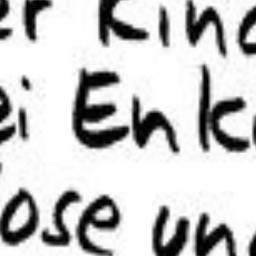 er Kind
ei Enk
ose und